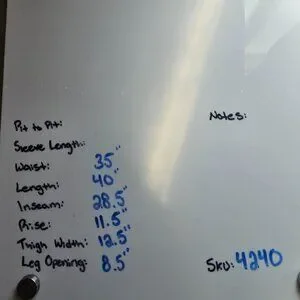 Pit to Pit:
Sleeve Length:
Waist: 35"
Length: 40"
Inseam: 28.5"
Rise: 11.5"
Thigh Width: 12.5"
Leg Opening: 8.5"
Notes:
Sku: 4240